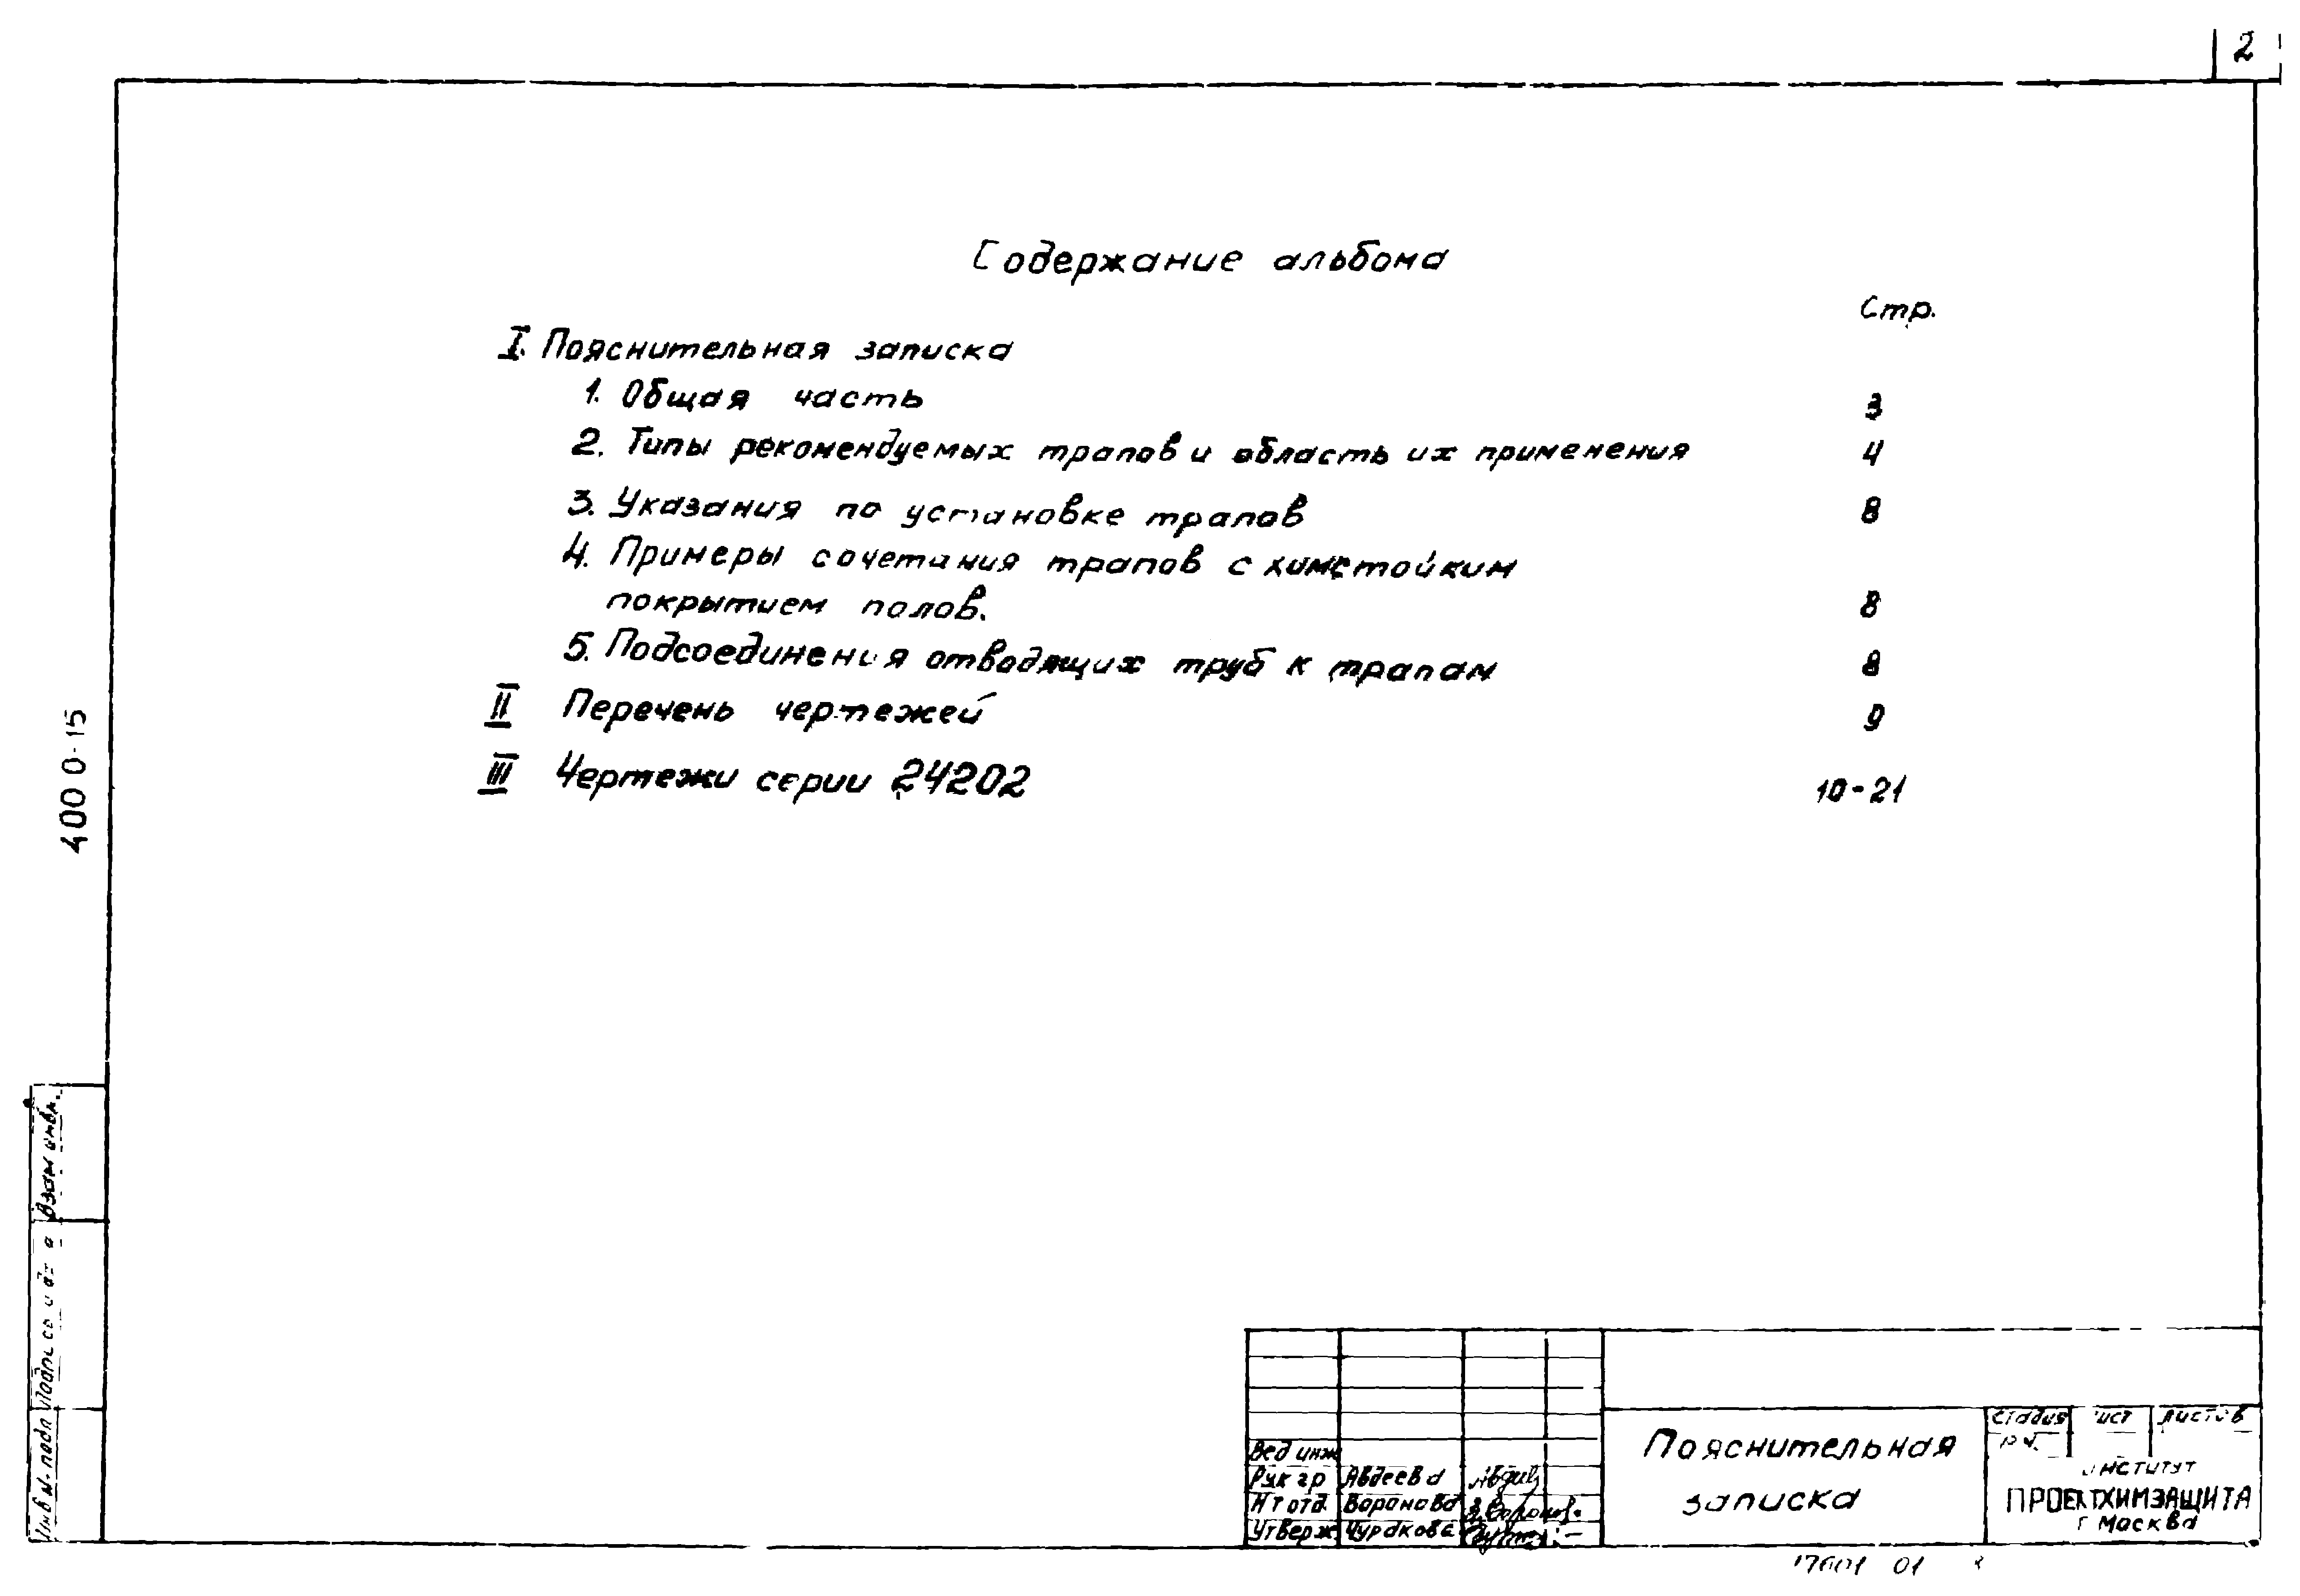 2
Содержание альбома
Стр.
I. Пояснительная записка
1. Общая часть 3
2. Типы рекомендуемых трапов и область их применения 4
3. Указания по установке трапов 8
4. Примеры сочетания трапов с химстойким
покрытием полов. 8
5. Подсоединения отводящих труб к трапам 8
II Перечень чертежей 9
III Чертежи серии 24202 10-21
400 0-15
Взам инв.
Инв N. подл
Вед инж
Рук гр Авдеева
Н т отд. Воронова
Утверж. Чуракова
Пояснительная
записка
Стадия Лист Листов
Институт
ПРОЕКТХИМЗАЩИТА
г Москва
01